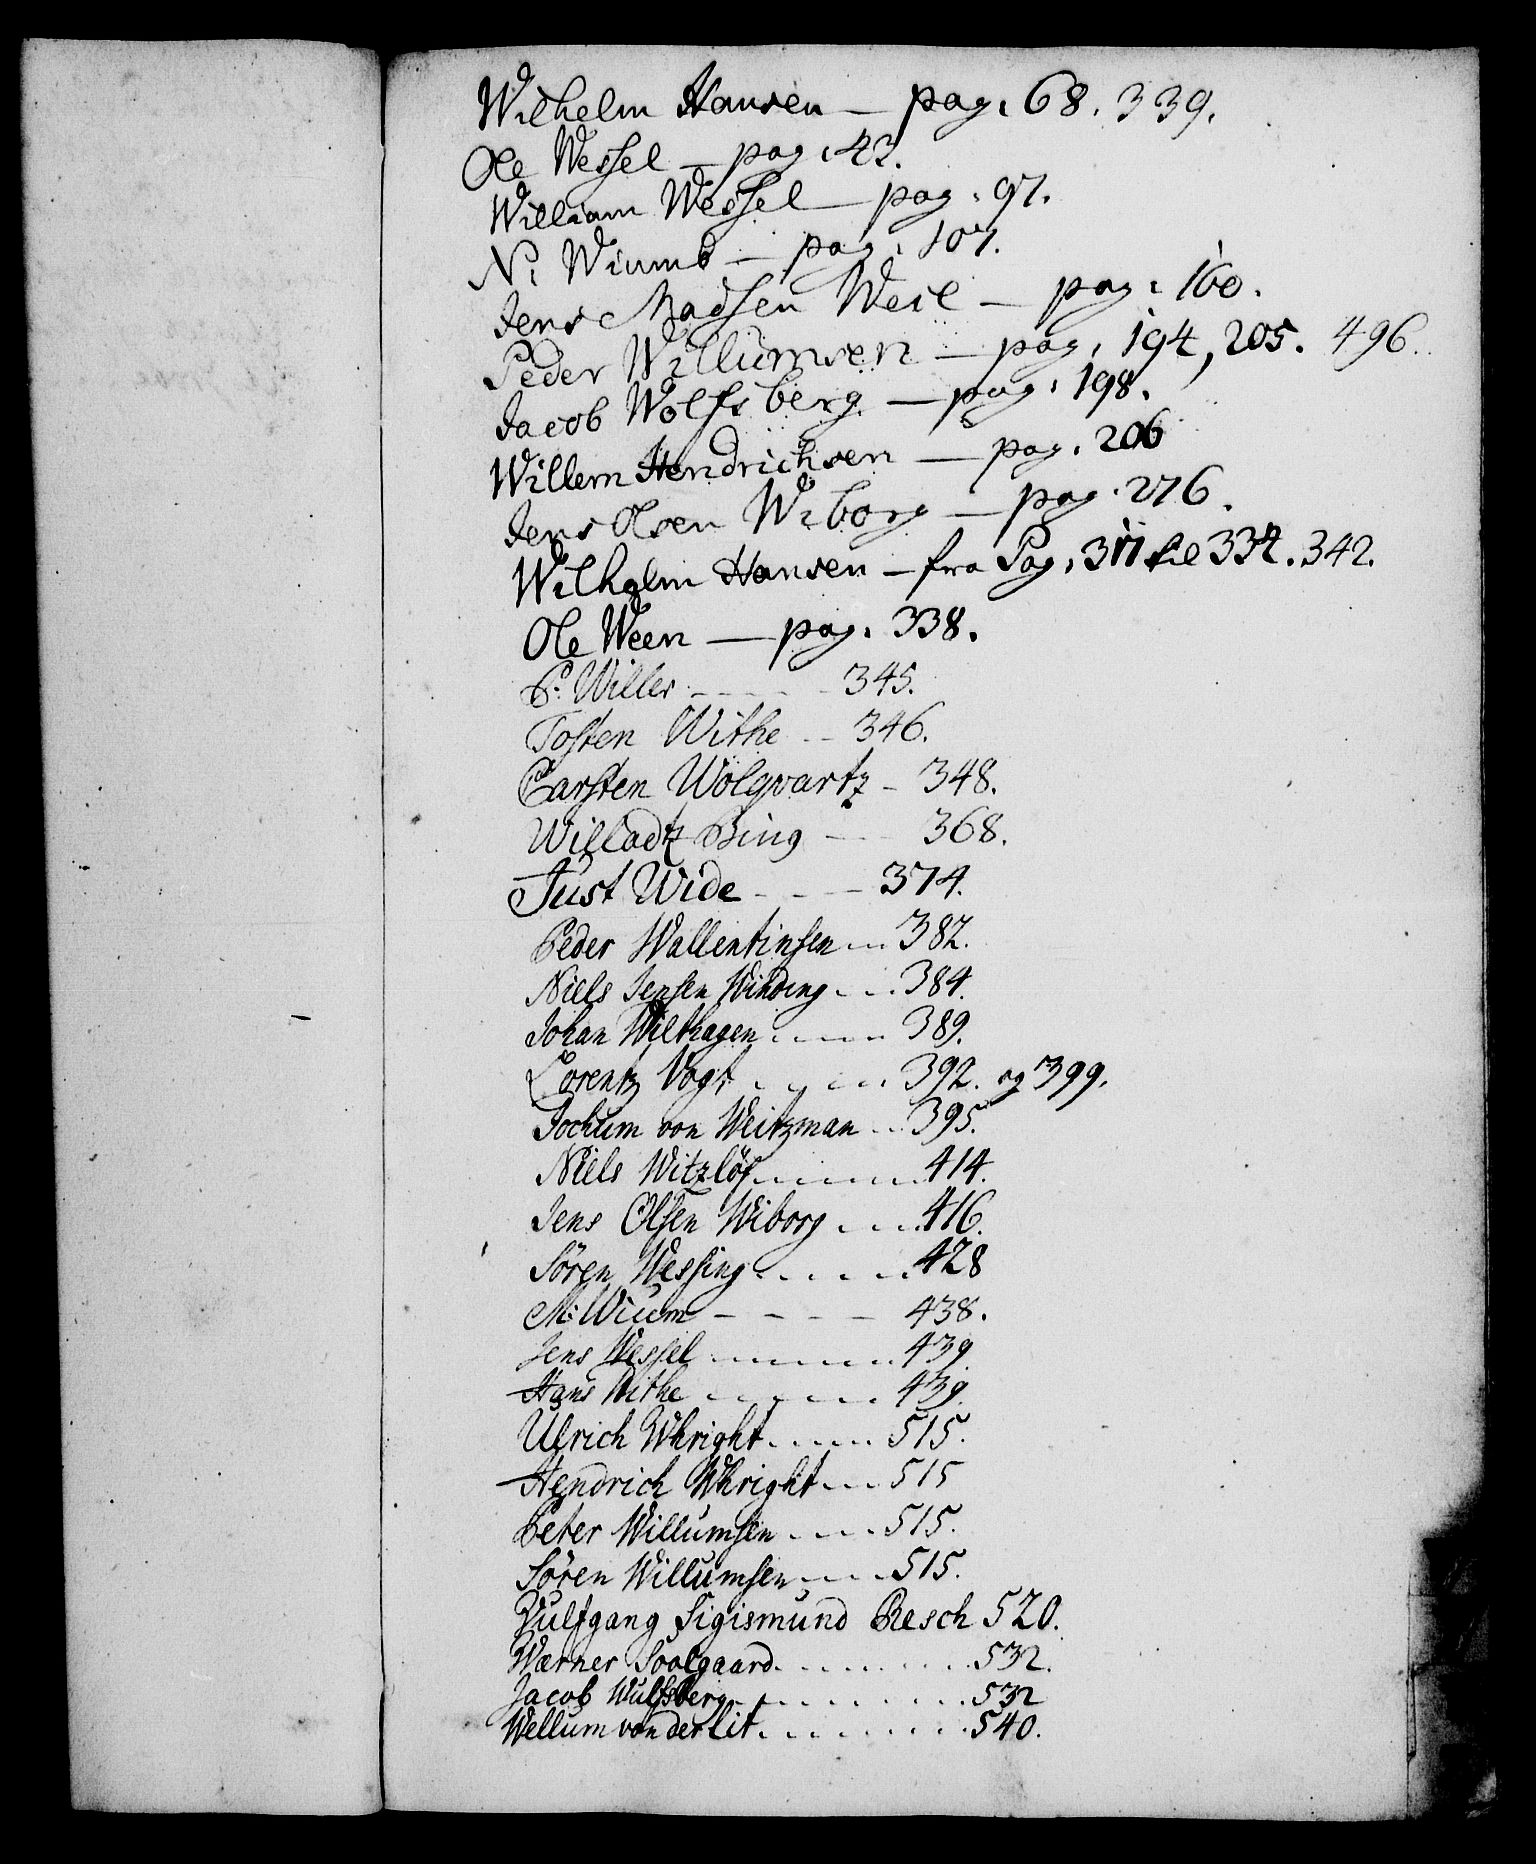 Wilhelm Hansen — pag: 68. 339.
Ole Wessel — pag: 42.
William Wessel — pag: 97.
N: Wiumb — pag: 107.
Jens Madsen Weil — pag: 160.
Peder Willumsen — pag: 194, 205. 496.
Jacob Wolfsberg — pag: 198.
Willem Hendrichsen — pag: 206
Jens Olsen Wiborg — pag: 276.
Wilhelm Hansen — fra Pag: 317 til 334. 342.
Ole Ween — pag: 338.
P: Willer - - - - 345.
Tosten Withe - - 346.
Carsten Wolqvartz - 348.
Willadtz Bing - - 368.
Just Wide - - - 374.
Peder Wallentinsen ... 382.
Niels Jensen Winding . . . 384.
Johan Wilthagen . . . . . 389.
Lorentz Vogt . . . . . 392. og 399.
Jochum von Weitzman . . . 395.
Niels Witzlöf . . . . . . . 414.
Jens Olsen Wiborg . . . . 416.
Sören Wessing . . . . . . 428
M: Wium - - - - - 438.
Jens Wessel . . . . . . . 439.
Hans Withe . . . . . . 439.
Ulrich Whright . . . . . 515.
Hendrich Whright . . . 515
Peter Willumsen . . . . 515.
Sören Willumsen . . . . 515.
Wulfgang Sigismund Resch 520.
Warner Soolgaard . . . . . . . . 532.
Jacob Wulfsberg . . . . . . . . . 532
Wellum von der Lit . . . . . . . . 540.